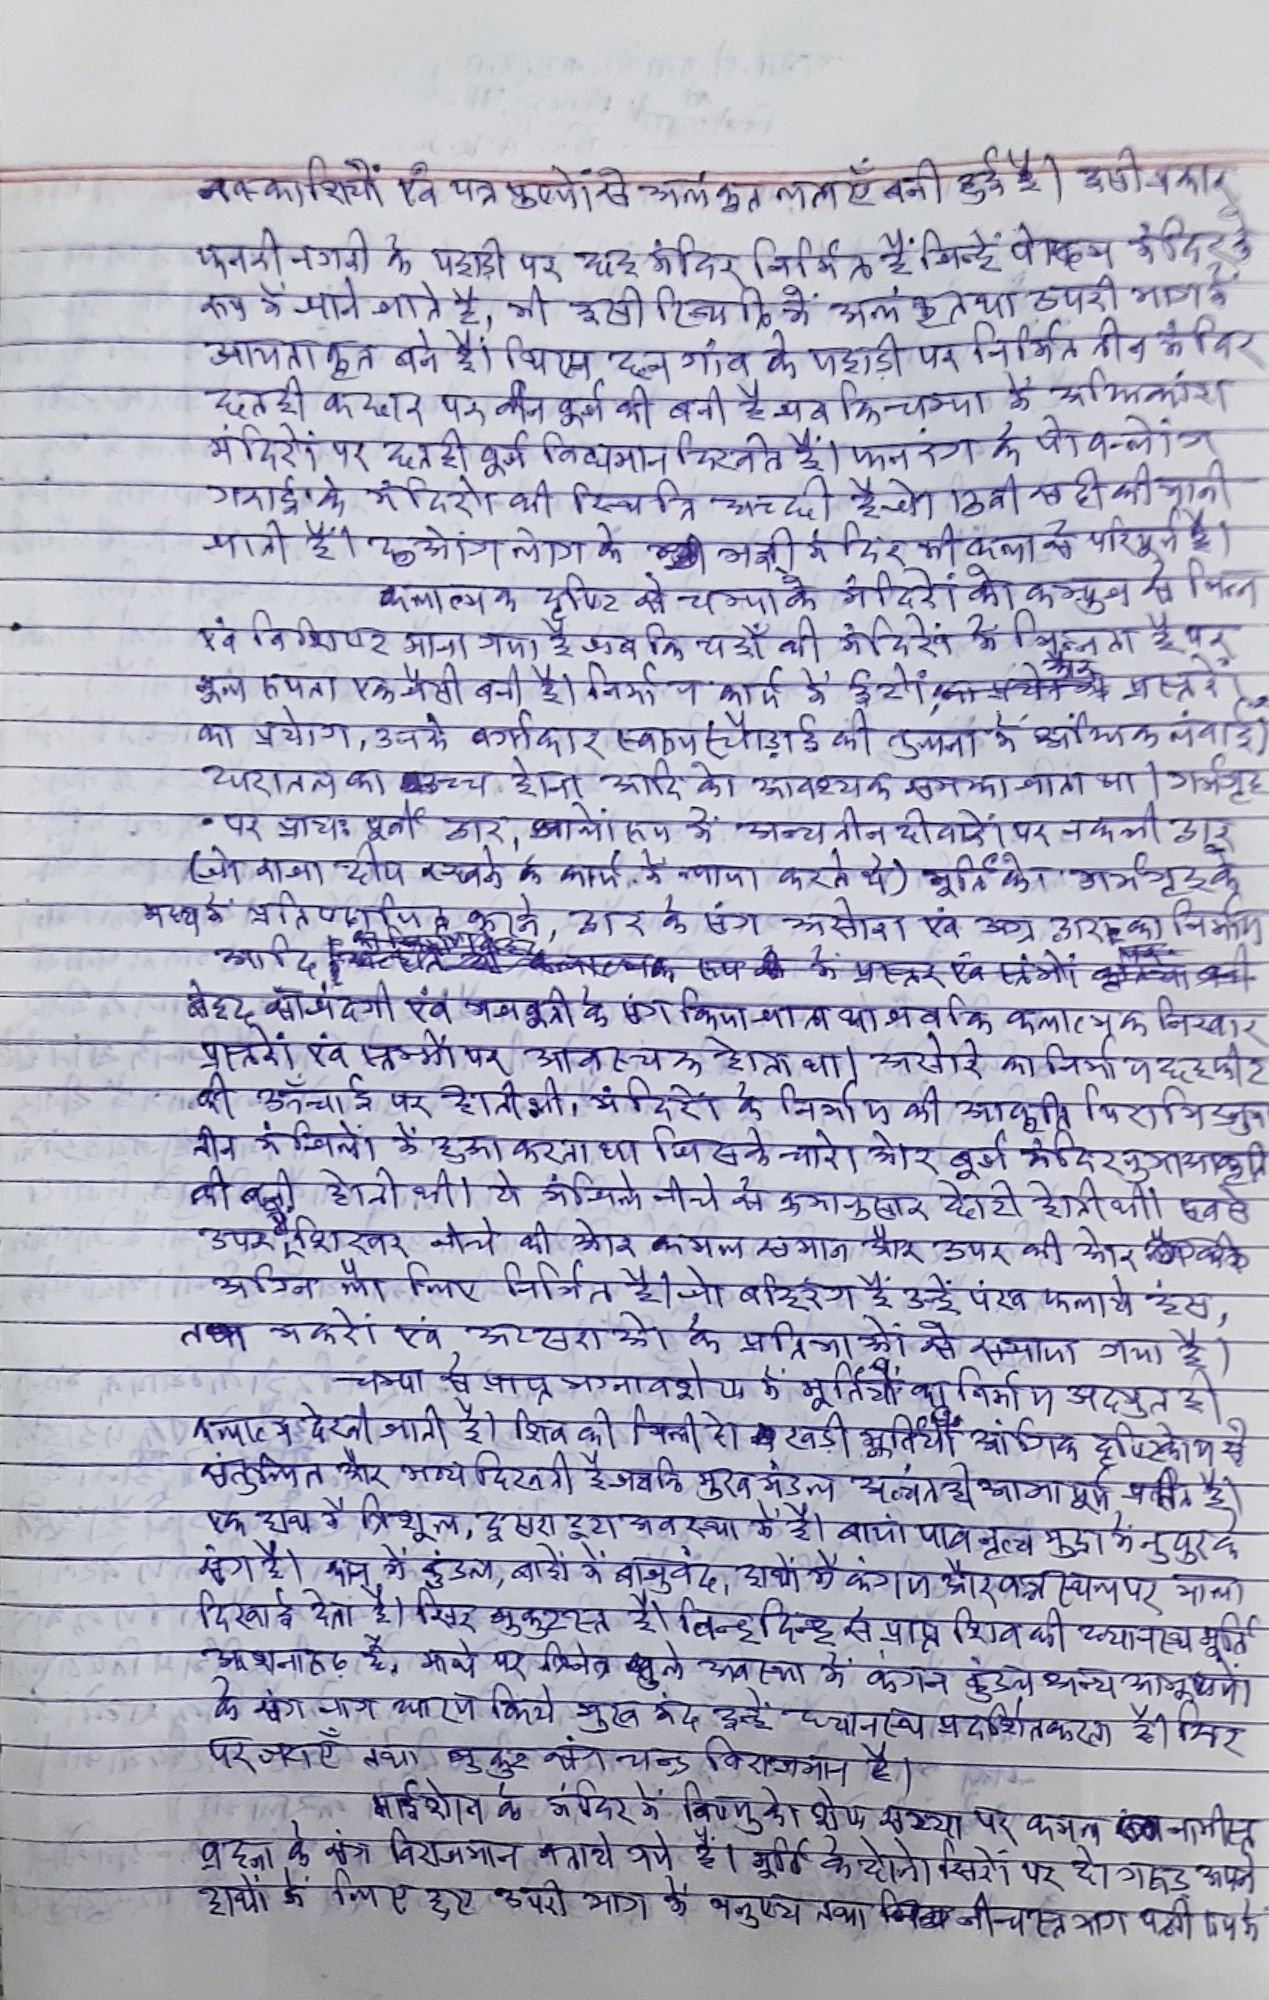 नक्काशियों एवं पत्र पुष्पों से अलंकृत लताएँ बनी हुई है। इसी प्रकार
फनरी नगरी के पहाड़ी पर छह मंदिर निर्मित हैं जिन्हें मंदिर के
रूप में जाने जाते है, भी इसी स्थिति में अलंकृत तथा उपरी भाग में
आयताकृत बने हैं। गांव के पहाड़ी पर निर्मित तीन मंदिर
छतही कतार पर तीन बुर्ज की बनी है जबकि चम्पा के अधिकांश
मंदिरों पर छतही बुर्ज विद्यमान दिखते हैं। फनरंग के पो क्लोंग
गराई के मंदिरों की स्थिति अच्छी है जो सदी की मानी
जाती है। के सभी मंदिर भी कला से परिपूर्ण है।
कलात्मक दृष्टि से चम्पा के मंदिरों को कम्बुज से भिन्न
एवं विशिष्ट माना गया है जबकि यहाँ की मंदिरों में भिन्नता है पर
कुल रूपता एक जैसी बनी है। निर्माण कार्य में ईटों और प्रस्तरों
का प्रयोग, उनके वर्गाकार स्वरूप (चौड़ाई की तुलना में अधिक लंबाई)
धरातल का उच्च होना आदि को आवश्यक समझा जाता था। गर्भगृह
पर प्रायः पूर्वी द्वार, आलों रूप में अन्य तीन दीवारों पर नकली द्वार
(जो दीप रखने के कार्य में करते थे) मूर्ति को गर्भगृह के
मध्य में प्रतिष्ठापित करने, द्वार के संग एवं अग्र द्वार का निर्माण
आदि
बेहद सादगी एवं मजबूती के संग किया जाता था जबकि कलात्मक निखार
प्रस्तरों एवं स्तम्भों पर आवश्यक होता था। का निर्माण छह फीट
की ऊँचाई पर होती थी, मंदिरों के निर्माण की आकृति पिरामिडनुमा
तीन मंजिलों में हुआ करता था जिसके चारों ओर बुर्ज मंदिरनुमा आकृति
की बनी होती थी। ये मंजिले नीचे से क्रमानुसार छोटी होती थी। सबसे
उपर शिखर नीचे की ओर कमल समान और उपर की ओर
अग्नि लौ लिए निर्मित है। जो बहिरंग हैं उन्हें पंख फलाये हंस,
तथा मकरों एवं अप्सराओं के प्रतिमाओं से सजाया गया है।
चम्पा से प्राप्त भग्नावशेष में मूर्तियों का निर्माण अदभुत ही
कलात्मक देखी जाती है। शिव की मिली दो खड़ी मूर्तियाँ आंगिक दृष्टिकोण से
संतुलित और भव्य दिखती है जबकि मुखमंडल अत्यंत ही आभापूर्ण प्रतीत है।
एक हाथ में त्रिशूल, दूसरा अवस्था में है। बायां पांव नृत्य मुद्रा में नुपुर के
संग है। कान में कुंडल, बाहों में बाजुबंद, हाथों में कंगण और वक्ष स्थल पर माला
दिखाई देता है। सिर मुकुटस्त है। बिन्ह दिन्ह से प्राप्त शिव की ध्यानस्थ मूर्ति
आशनारूढ़ है, माथे पर त्रिनेत्र खुले अवस्था में कंगन कुंडल अन्य आभूषणों
के संग नाग धारण किये मुख बंद इन्हें ध्यानस्थ प्रदर्शित करता है। सिर
पर जटाएँ तथा मुकुट संग चन्द्र विराजमान है।
माईशोन के मंदिर में विष्णु को शेष शय्या पर कमल नाभीस्त
ब्रह्मा के संग विराजमान बताये गये हैं। मूर्ति के दोनों सिरों पर दो गरूड़ अपने
हाथों में लिए हुए ऊपरी भाग में मनुष्य तथा नीचस्त भाग पक्षी रूप में